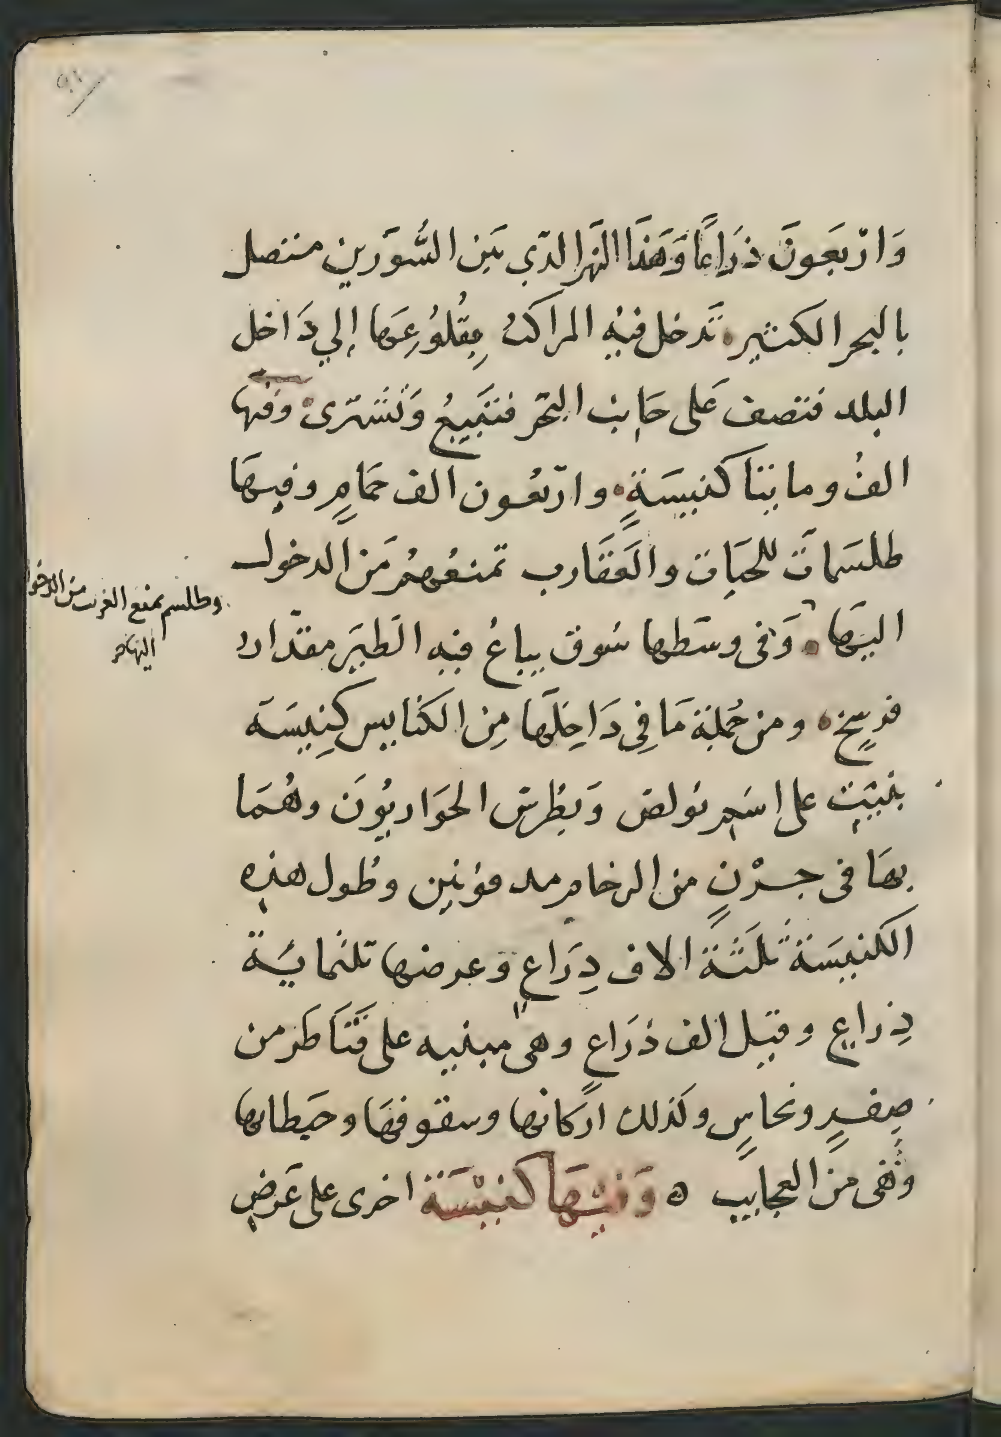 وَارْبَعَونَ ذرَاعًا وَهَذَا النهر الدّي بَين السُّوَرين متصل
بالبحر الكثير تَدخل فيْه المراكبُ بِقُلُوُعِهَا إلي دَاخل
البلد فتصف عَلى حَانب البحَّر فتبَيعُ وَتشترى وَفيها
الفُ ومايتا كنيسَةٍ وارْبعُون الف حمَامٍ وفيهَا
طلسَماتٌ للحيَات والعَقَارب تمنعُهمُ مَن الدخول
اليهَا وَفى وسَطها سُوق يباعُ فيه الطَيَر مقدَار
فرسخٍ ومن جُملة مَا فِي دَاخِلَهَا مِن الكنايس كنِيسَه
بنيت على اسَم بولص وَبطرس الحوَاريُونَ وهُمَا
بهَا فى جرْنٍ من الرخام مدفونين وطُول هذه
الكنيسَة ثلَثةَ الاف ذِرَاعٍ وعرضها ثلثمايَة
ذِراع وقيل الف ذرَاعٍ وهى مبنيه على قنَاطر من
صِفرٍ ونحاسٍ وكذلك اركانها وسقوفهَا وحيطانها
وَهى منَ العجايب ه وَفيهَا كنيْسَة اخرى على عَرض
وطلسم يمنع الغريب من الدخول
اليها